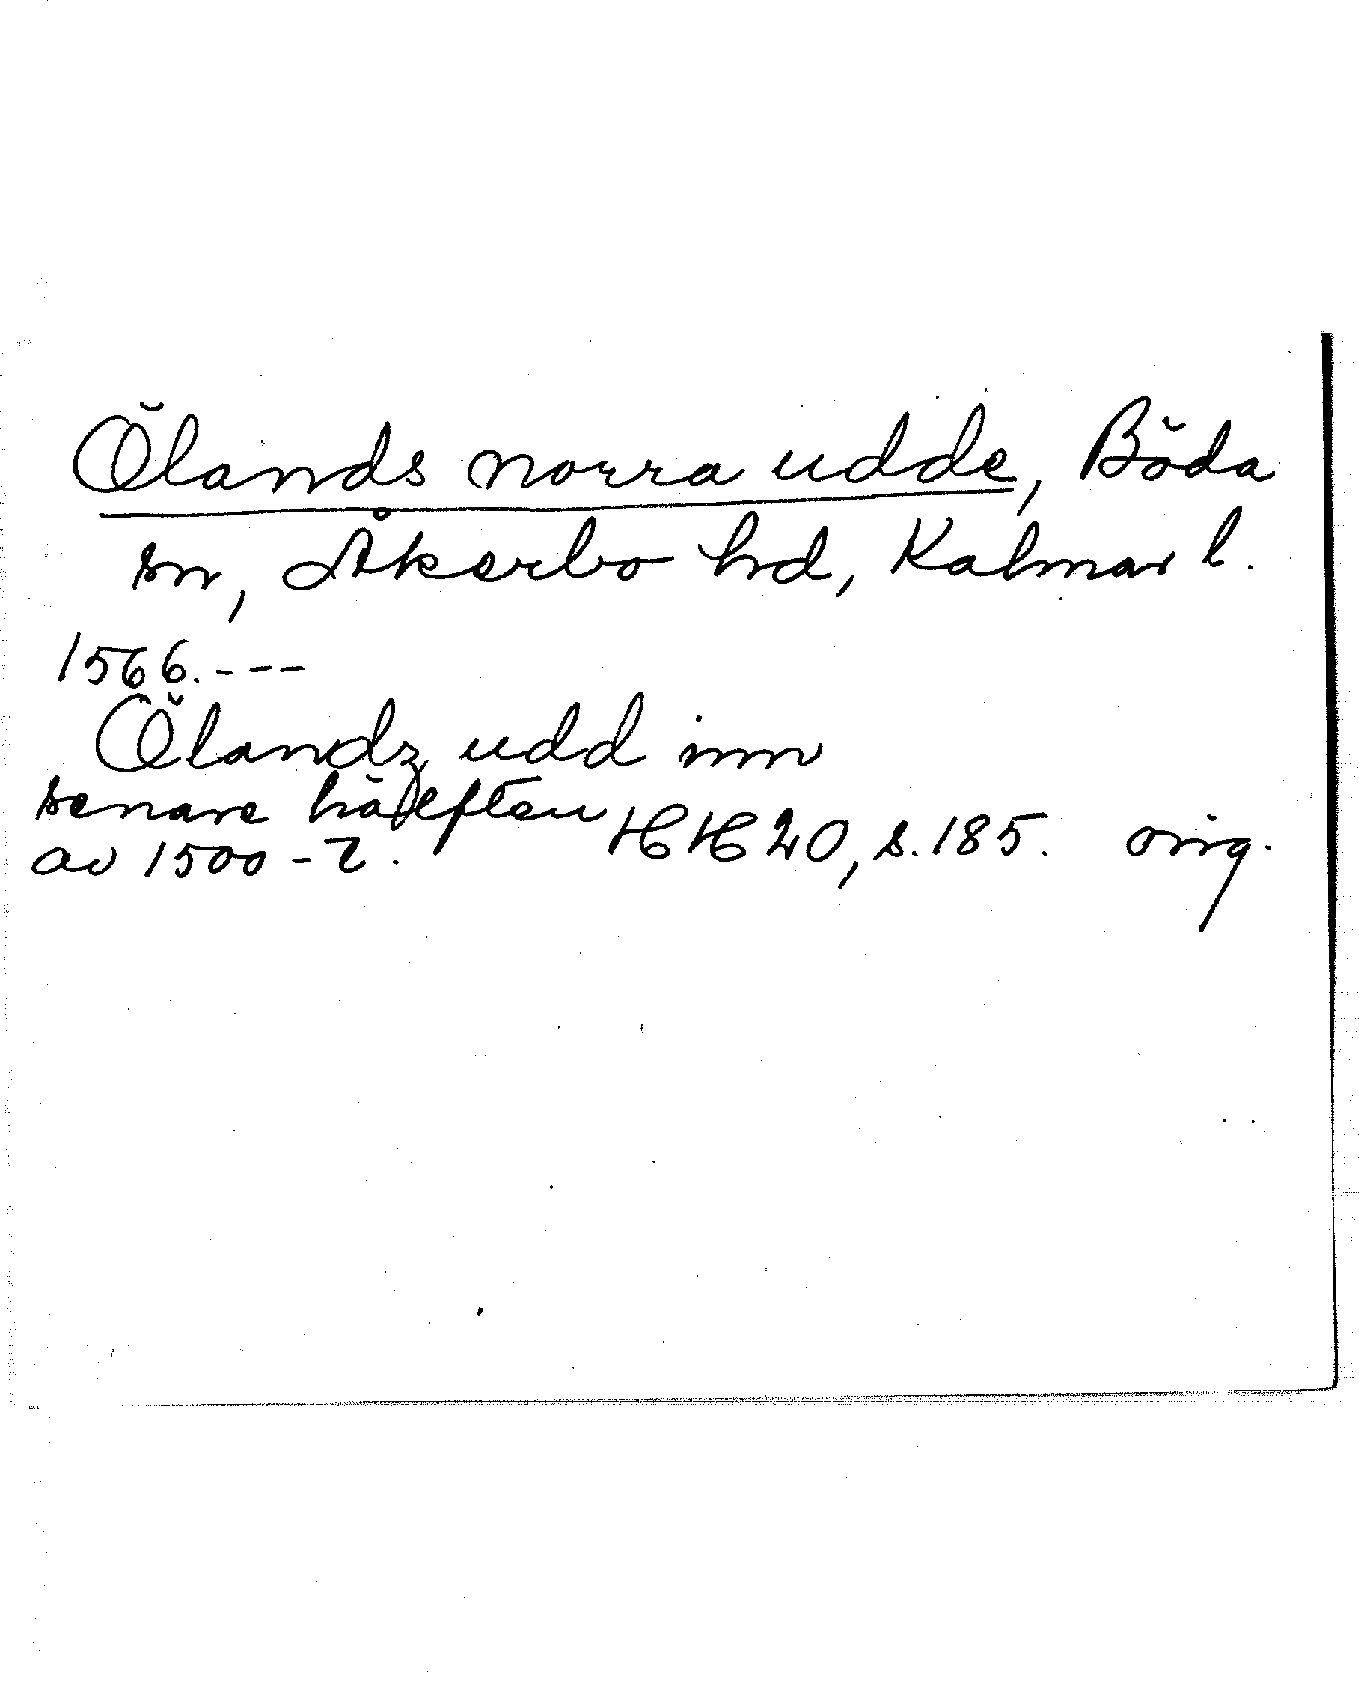 Ölands norra udde, Böda
sn, Åkerbo hd, Kalmar l.
1566.---
Ölandz udd inn
senare hälften
av 1500-t. HH 20, s. 185. orig.